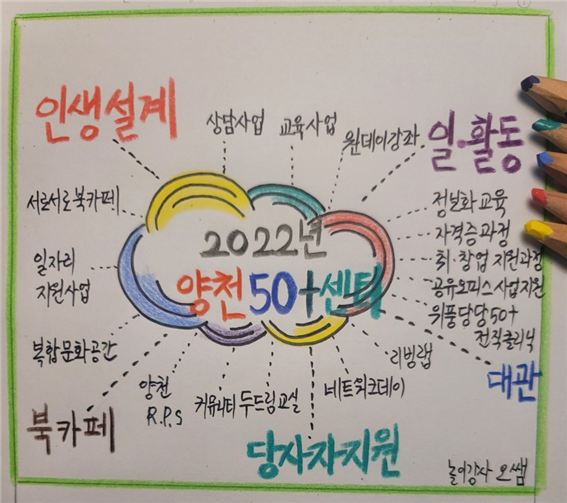 인생설계
상담사업
교육사업
원데이강좌
일·활동
서로서로북카페
정보화교육
자격증과정
취·창업 지원과정
공유오피스사업지원
위풍당당50+
전직클리닉
2022년
양천50+센터
일자리
지원사업
복합문화공간
대관
리빙랩
네트워크데이
두드림교실
커뮤니티
양천
R.P.S
북카페
당사자지원
놀이강사 오쌤